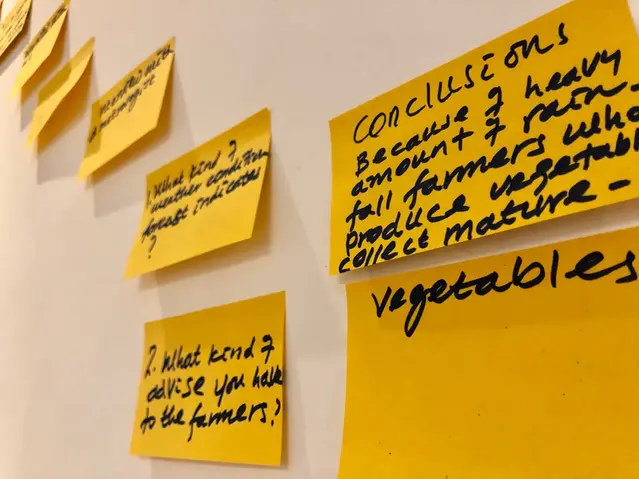 1. What kind of
weather condition
forcast indicates
?
2. What kind of
advise you have
to the farmers?
CONCLUSIONS
Because of heavy
amount of rain-
fall farmers who
produce vegetabl
collect mature-
vegetables